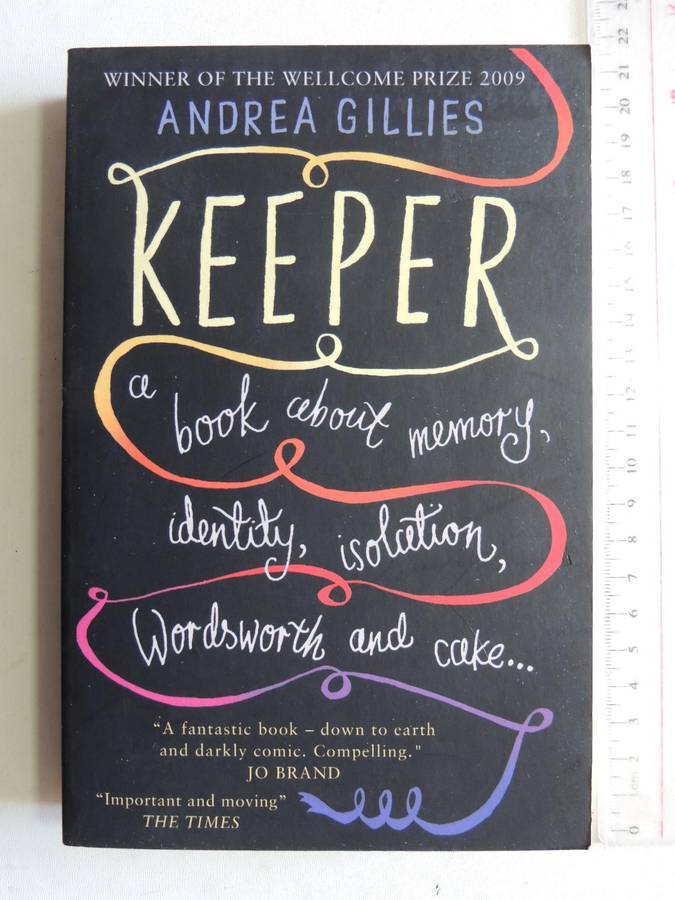 WINNER OF THE WELLCOME PRIZE 2009
ANDREA GILLIES
KEEPER
a book about memory,
identity, isolation,
Wordsworth and cake...
"A fantastic book – down to earth
and darkly comic. Compelling."
JO BRAND
"Important and moving"
THE TIMES
22
21
20
19
18
17
16
15
14
13
12
11
10
9
8
7
6
5
4
3
2
1cm
0